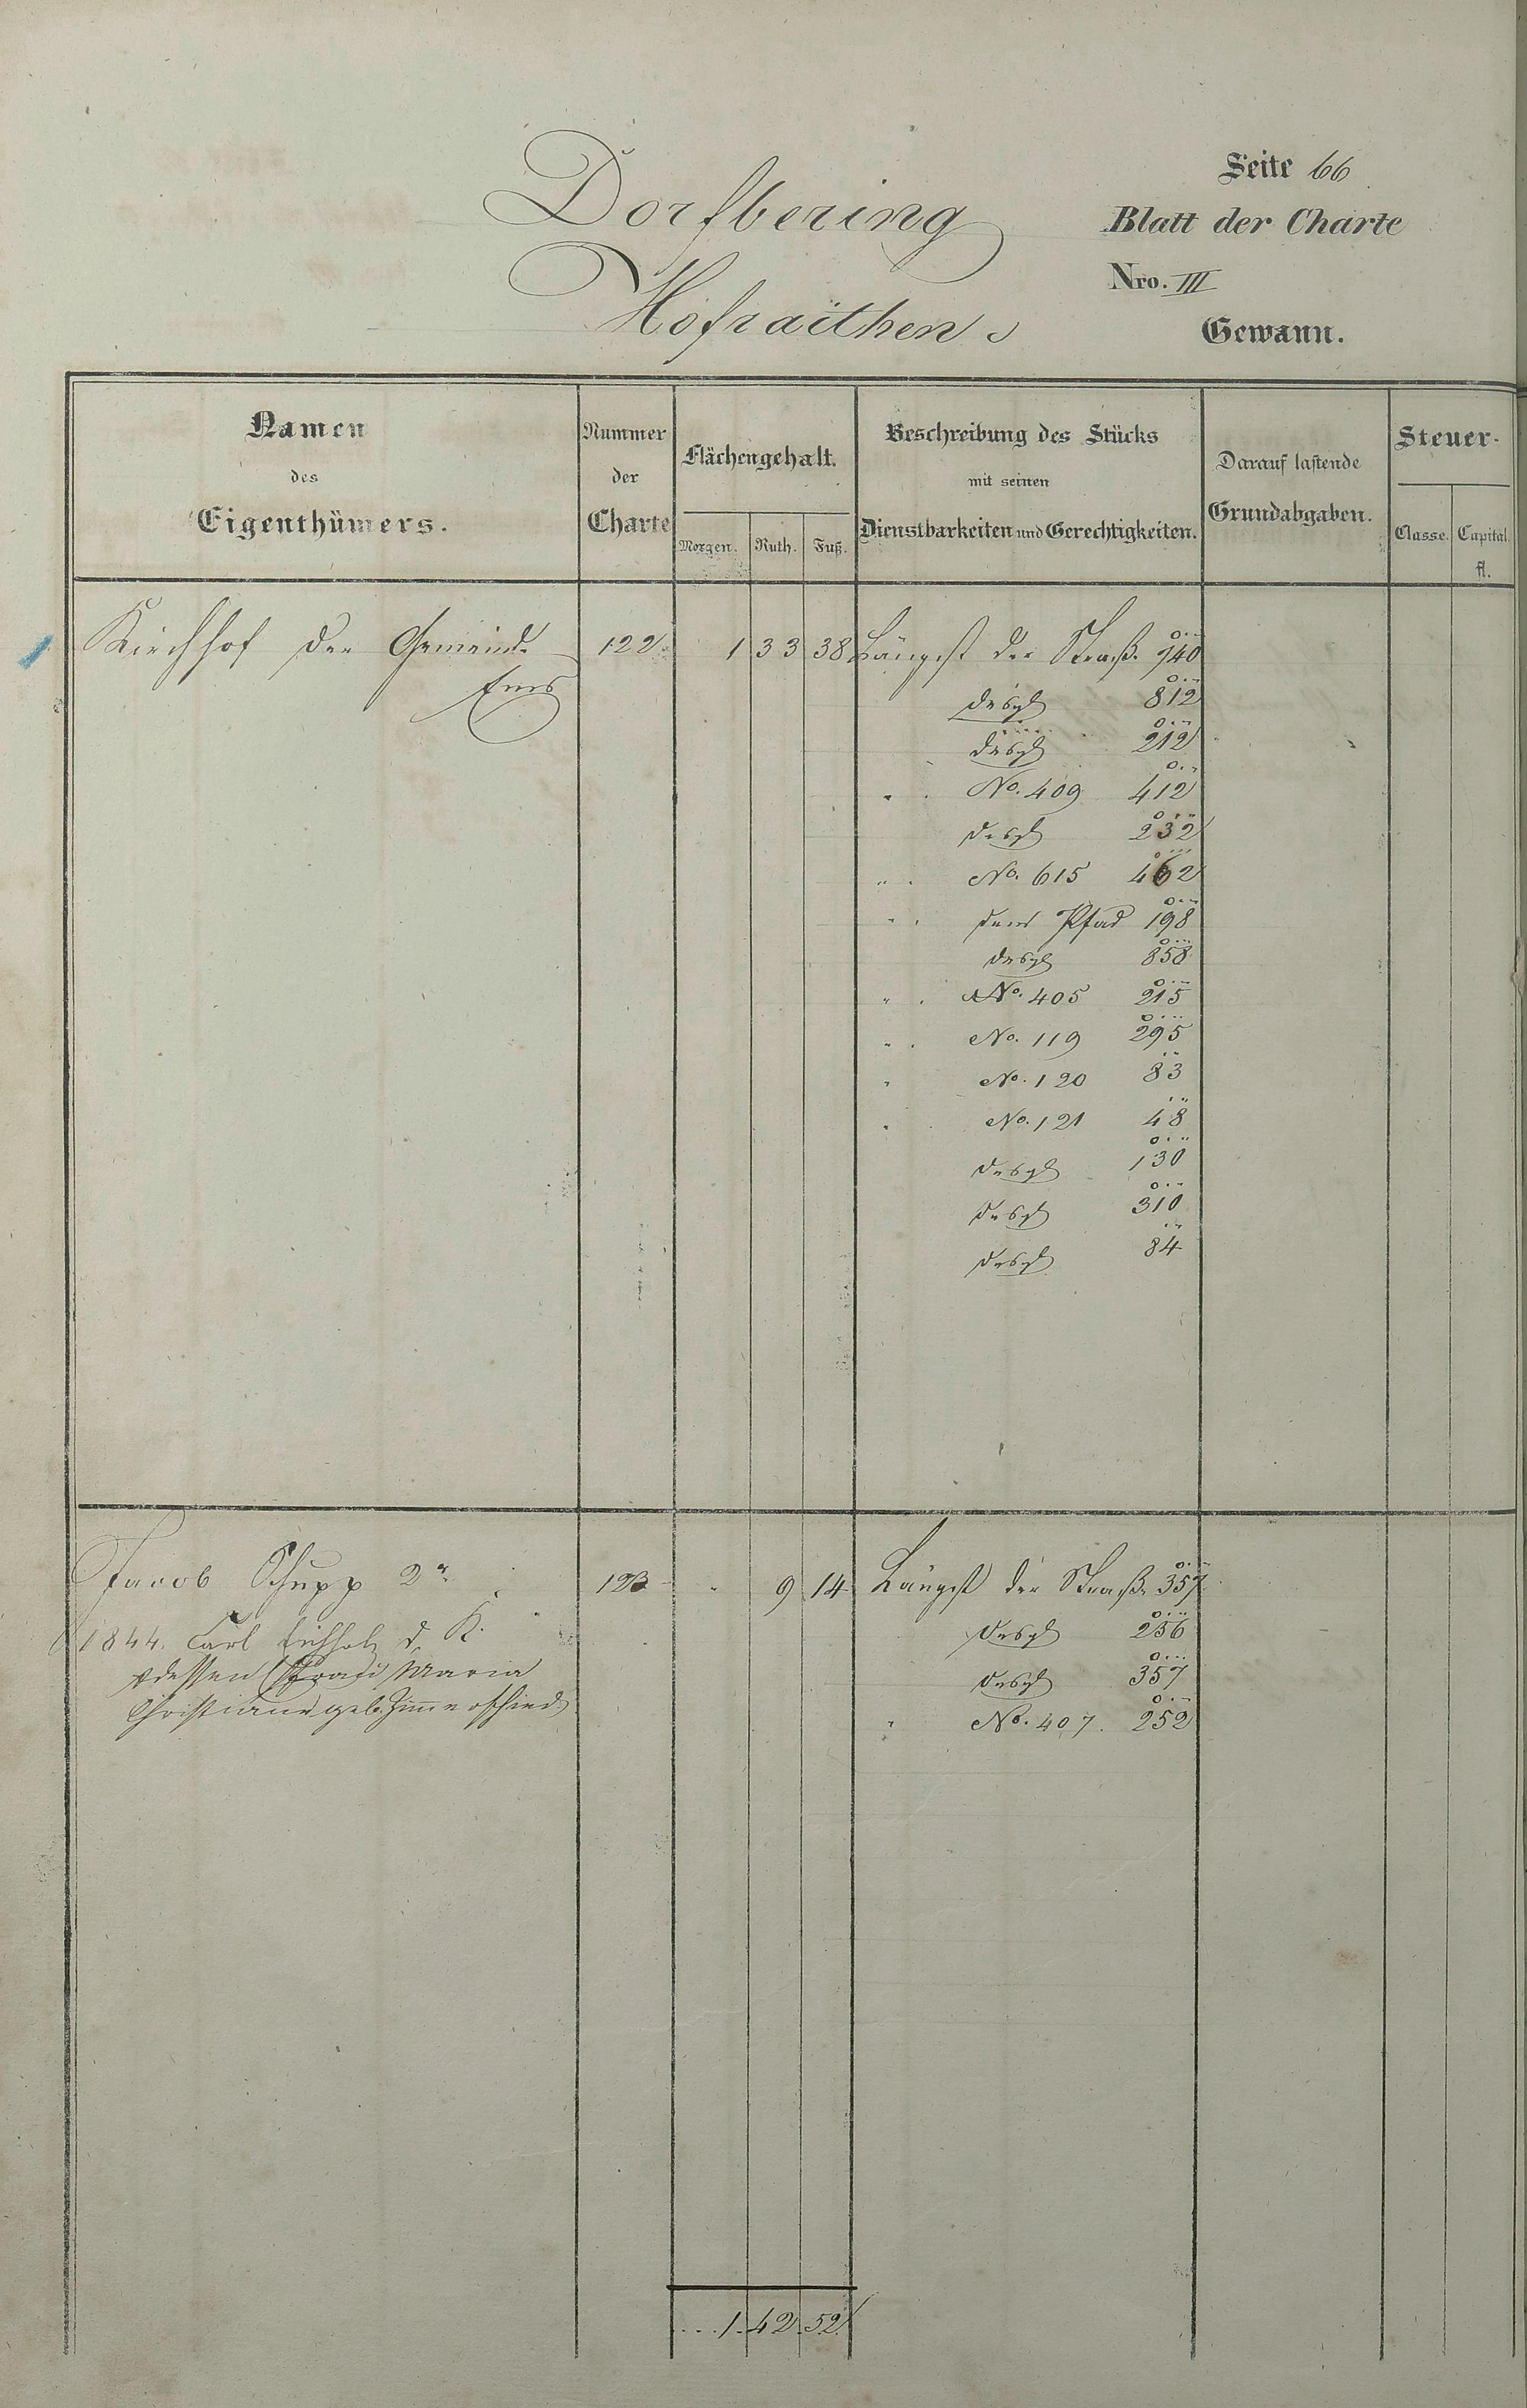 Dorfbering
Hofraithen
Seite 66
Blatt der Charte
Nro. III
Gewann.
Namen
des
Eigenthümers.
Nummer
der
Charte
Flächengehalt.
Morgen. Ruth. Fuß.
Beschreibung des Stücks
mit seinen
Dienstbarkeiten und Gerechtigkeiten.
Darauf lastende
Grundabgaben.
Steuer-
Classe. Capital.
fl.
Kirchhof der Gemeinde 122 1 33 38 Längst der Straße 940
Ems
desgl 812
desgl 212
" " No. 409 412
desgl 232
" " No. 615 462
" " dem Pfad 198
desgl 858
" " No. 405 215
" " No. 119 295
" No. 120 83
" No. 121 48
desgl 130
desgl 310
desgl 84
Jacob Schupp 2r 123 " 9 14 Längst der Straße 357
1844. Carl Eichholz d. K. desgl 256
dessen Frau Maria desgl 357
Christiane geb. Zimmerschied " No. 407. 252
1. 42. 52.